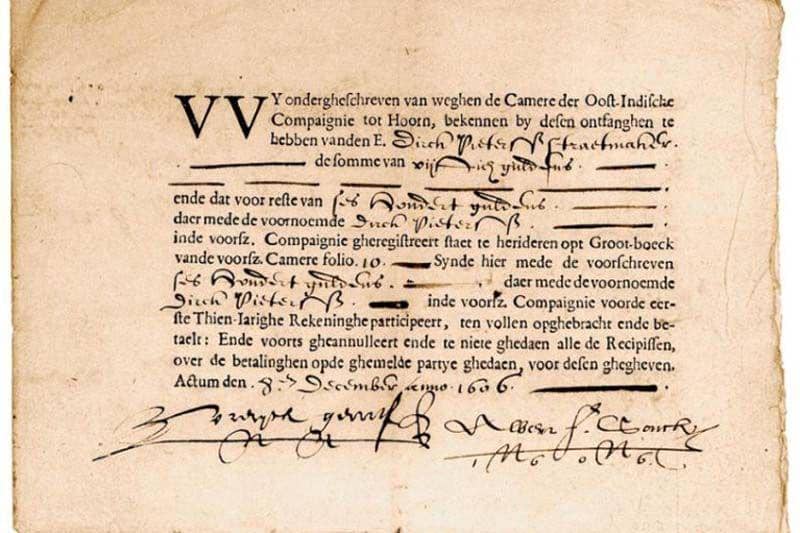 VVY ondergheschreven van weghen de Camere der Oost-Indische
Compaignie tot Hoorn, bekennen by desen ontfanghen te
hebben vanden E. Dirck Pietersß Straetmaker.
de somme van vijftich guldens.
ende dat voor reste van ses hondert guldens.
daer mede de voornoemde Dirck Pietersß.
inde voorsz. Compaignie gheregistreert staet te herideren opt Groot-boeck
vande voorsz. Camere folio. 10. Synde hier mede de voorschreven
ses hondert guldens. daer mede de voornoemde
Dirck Pietersß. inde voorsz. Compaignie voorde eer-
ste Thien-Iarighe Rekeninghe participeert, ten vollen opghebracht ende be-
taelt: Ende voorts gheannulleert ende te niete ghedaen alle de Recipissen,
over de betalinghen opde ghemelde partye ghedaen, voor desen ghegheven.
Actum den. 8en December anno. 1606.